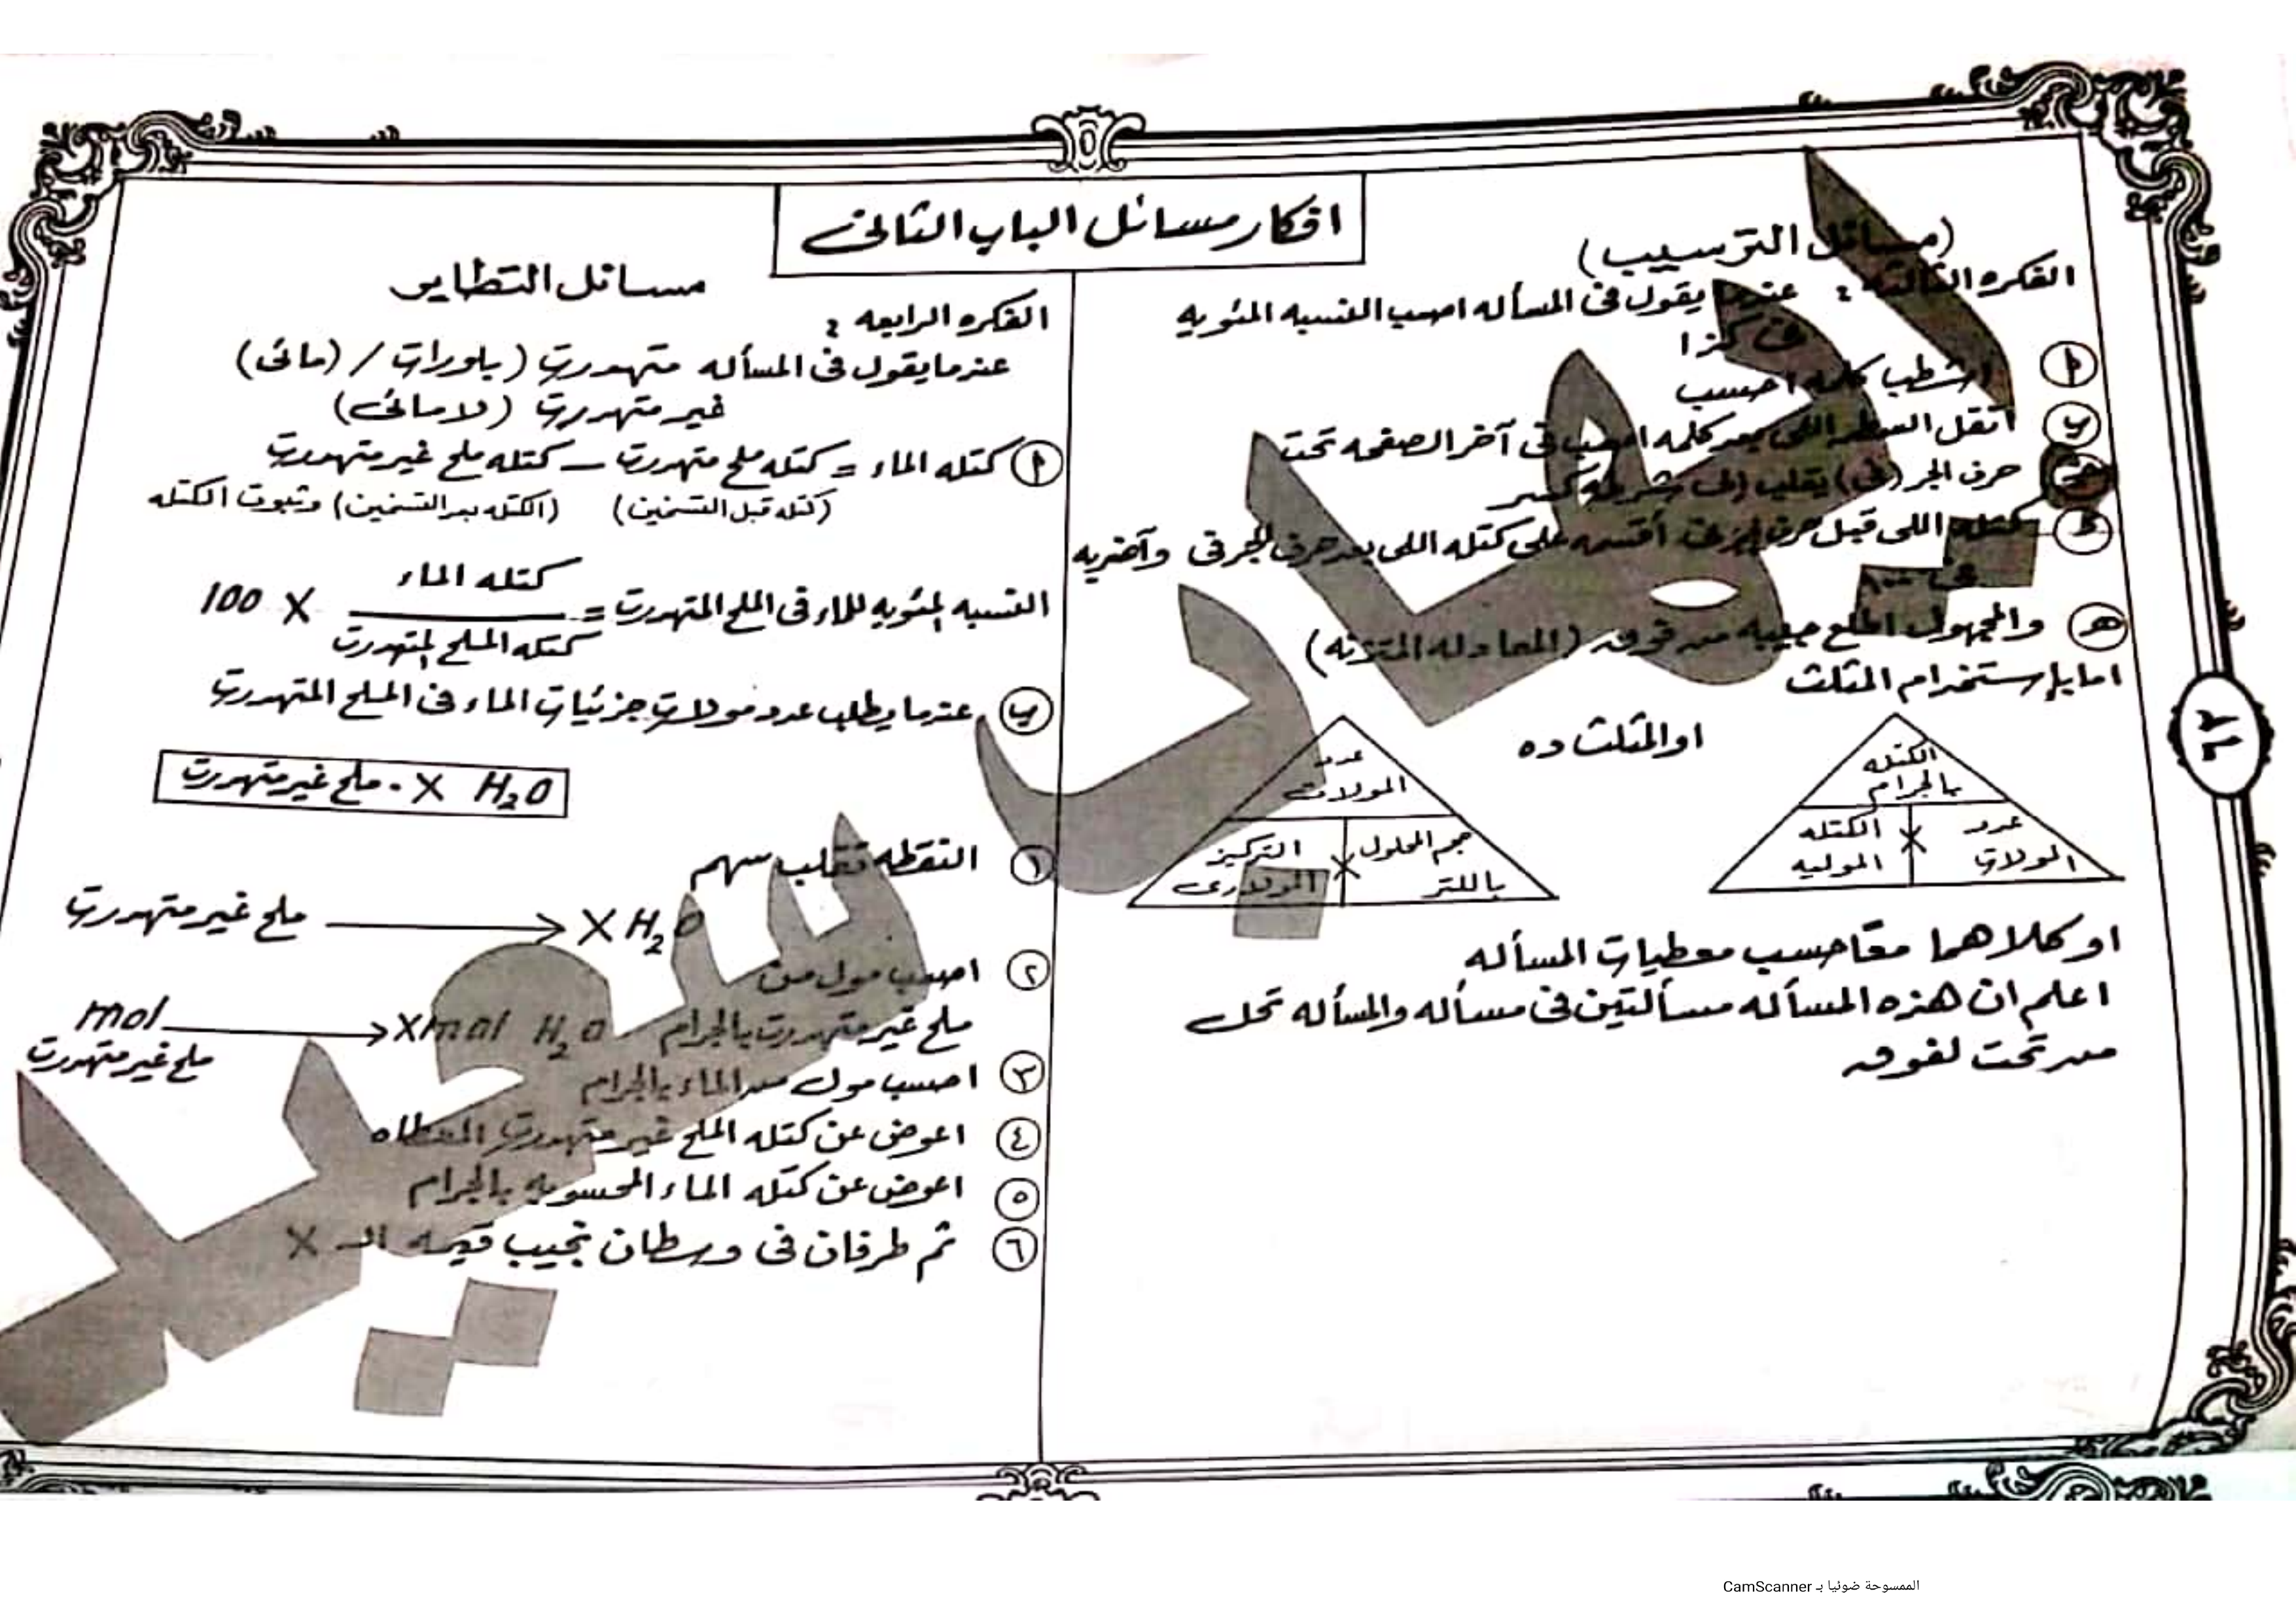 افكار مسائل الباب الثانى
(مسائل الترسيب)
الفكره الثالثه : عندما يقول فى المسأله احسب النسبه المئويه
فى كذا
أ اشطب كلمه احسب
ب انقل السطر اللى بعد كلمه احسب فى آخر الصفحه تحت
جـ حرف الجر (فى) يقلب إلى شرطه كسر
د كتله اللى قبل حرف الجر فى أقسمه على كتله اللى بعد حرف الجر فى وآضربه
فى ١٠٠
هـ والمجهول اطلع جيبه من فوق (المعادله المتزنه)
اما بإستخدام المثلث
الكتله
بالجرام
عدد
المولات
×
الكتله
الموليه
او المثلث ده
عدد
المولات
حجم المحلول
باللتر
×
التركيز
المولارى
او كلاهما معًا حسب معطيات المسأله
اعلم ان هذه المسأله مسألتين فى مسأله والمسأله تحل
من تحت لفوق
مسائل التطاير
الفكره الرابعه :
عندما يقول فى المسأله متهدرت (بلورات / (مائى)
غير متهدرت (لا مائى)
أ كتله الماء = كتله ملح متهدرت – كتله ملح غير متهدرت
(كتله قبل التسخين) (الكتله بعد التسخين) وثبوت الكتله
النسبه المئويه للماء فى الملح المتهدرت = كتله الماء / كتله الملح المتهدرت X 100
ب عندما يطلب عدد مولات جزئيات الماء فى الملح المتهدرت
ملح غير متهدرت . X H2O
١ النقطه تقلب سهم
ملح غير متهدرت → X H2O
٢ احسب مول من
ملح غير متهدرت بالجرام
mol ملح غير متهدرت → X mol H2O
٣ احسب مول من الماء بالجرام
٤ اعوض عن كتله الملح غير متهدرت المعطاه
٥ اعوض عن كتله الماء المحسوبه بالجرام
٦ ثم طرفان فى وسطان تجيب قيمه الـ X
٢٦
الممسوحة ضوئيا بـ CamScanner